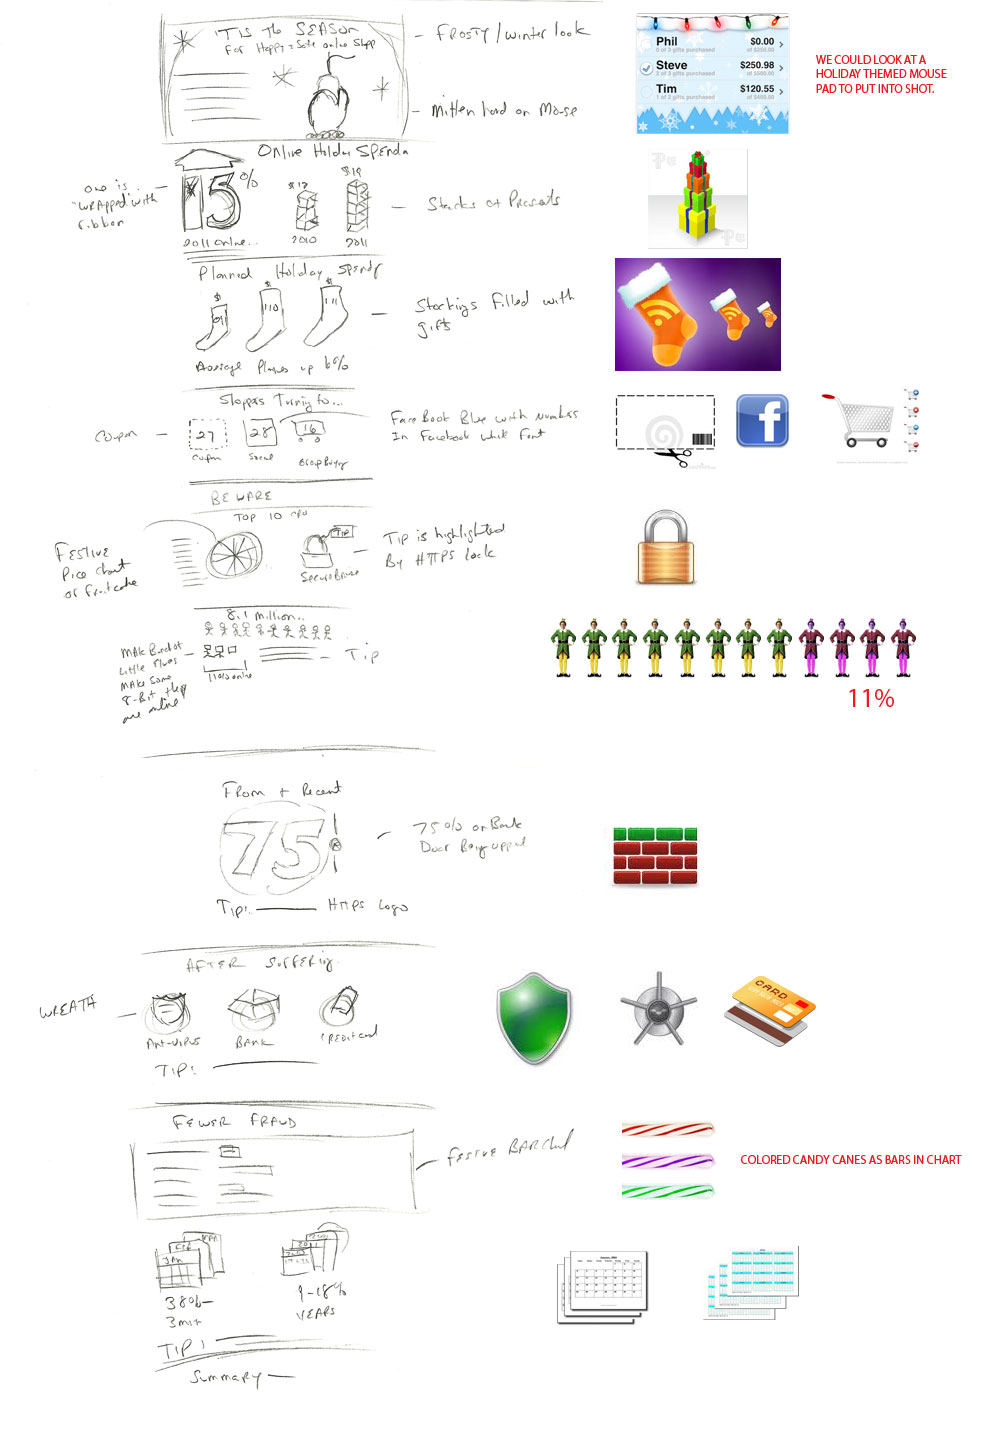 'TIS The SEASON
For Happy + Safe online Shopp
FROSTY/winter look
Mitten hand on Mouse
Phil
$0.00
0 of 3 gifts purchased
of $250.00
Steve
$250.98
2 of 3 gifts purchased
of $500.00
Tim
$120.55
1 of 3 gifts purchased
of $400.00
WE COULD LOOK AT A
HOLIDAY THEMED MOUSE
PAD TO PUT INTO SHOT.
Online Holiday Spending
one is
"WRAPPED" with
ribbon
15%
2011 online...
2010
2011
Stacks of Presents
Planned Holiday Spendg
$
$
$
110
Stockings filled with
gifts
Average Planes up 6%
Shoppers Turning to...
Coupon
27
28
16
Coupon
Social
Group Buying
FaceBook Blue with Numbers
In Facebook White Font
f
BEWARE
TOP 10
FESTIVE
Piece Chart
or Fruitcake
Tip
Secure Browse
Tip is highlighted
By HTTPS lock
8.1 million..
Make Bunch of
Little Elves
Make Some
8-Bit they
are online
11% online
Tip
11%
From + Recent
75%
75% on Bank
Door Being
Tip: HTTPS Logo
AFTER SUFFERING
WREATH
Anti-VIRUS
BANK
CREDIT card
TIP:
CARD
FEWER FRAUD
FESTIVE BAR Chart
COLORED CANDY CANES AS BARS IN CHART
JAN
FEB
MAR
38%
3 mnt
9-18%
YEARS
TIP!
Summary